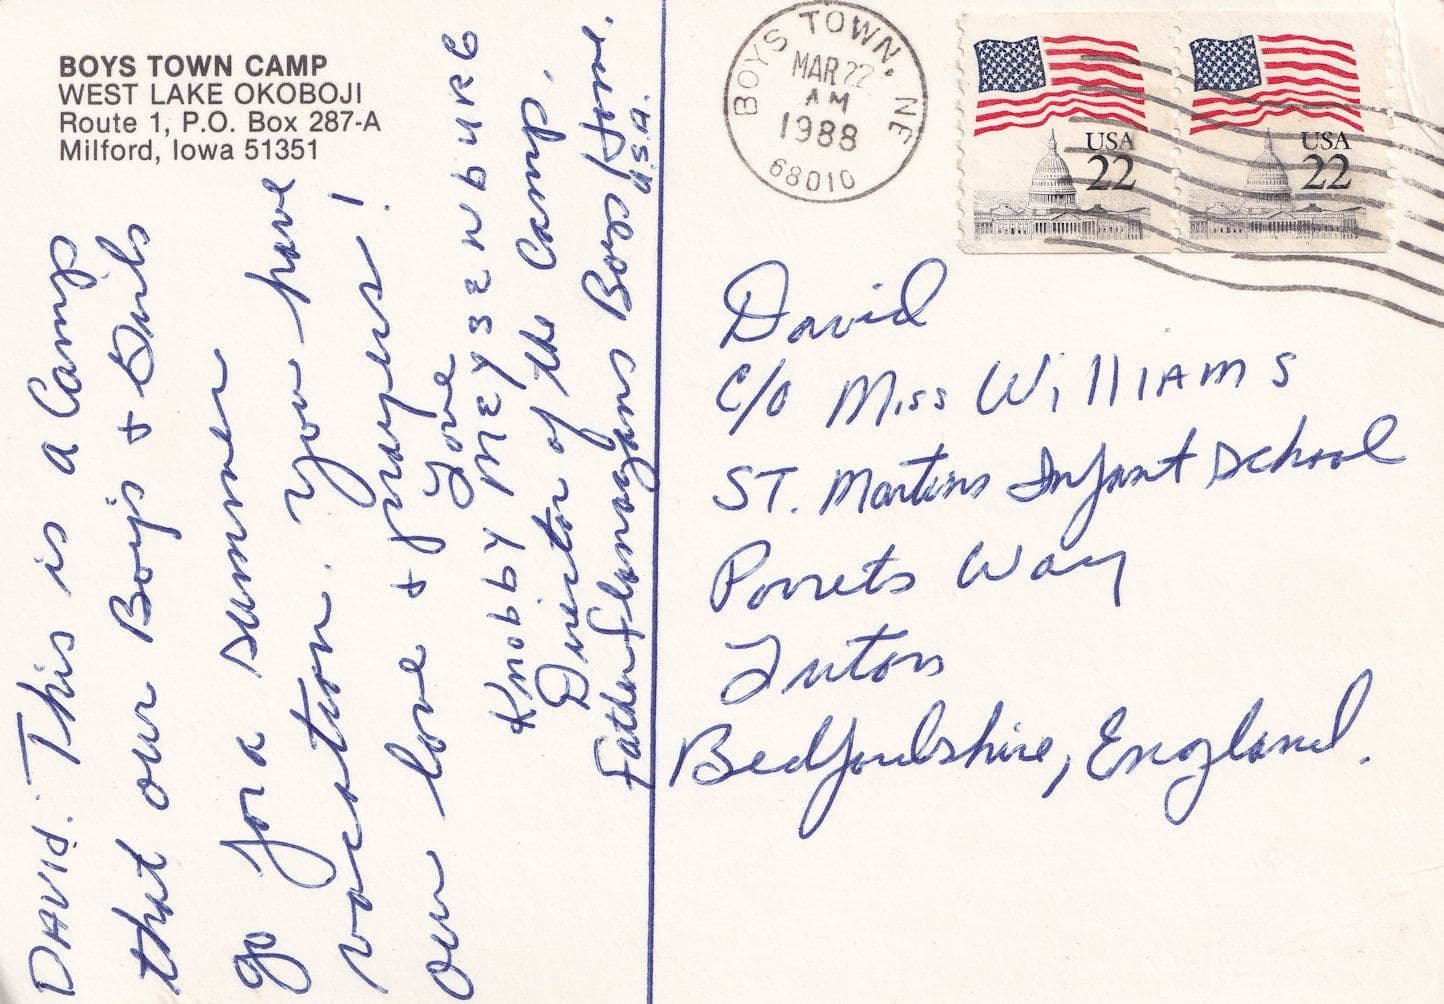 BOYS TOWN CAMP
WEST LAKE OKOBOJI
Route 1, P.O. Box 287-A
Milford, Iowa 51351
DAVID. This is a Camp
that our Boys + Girls
go for a summer
vacation. You have
our love + prayers!
Love
Knobby Meysenburg
Director of the Camp.
Father Flanagans Boys Home.
U.S.A.
BOYS TOWN, NE
MAR 22
AM
1988
68010
USA
22
USA
22
David
c/o Miss Williams
ST. Martins Infant School
Porrets Way
Luton
Bedfordshire, England.